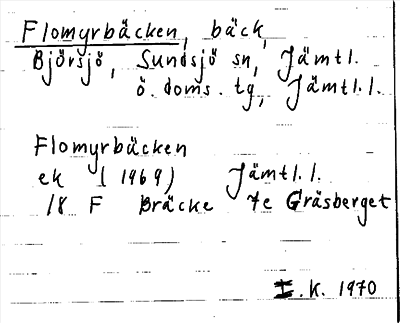 Flomyrbäcken, bäck,
Björsjö, Sundsjö sn, Jämtl.
ö. doms. tg, Jämtl.l.
Flomyrbäcken
ek (1969) Jämtl.l.
18 F Bräcke 7e Gräsberget
I.K. 1970